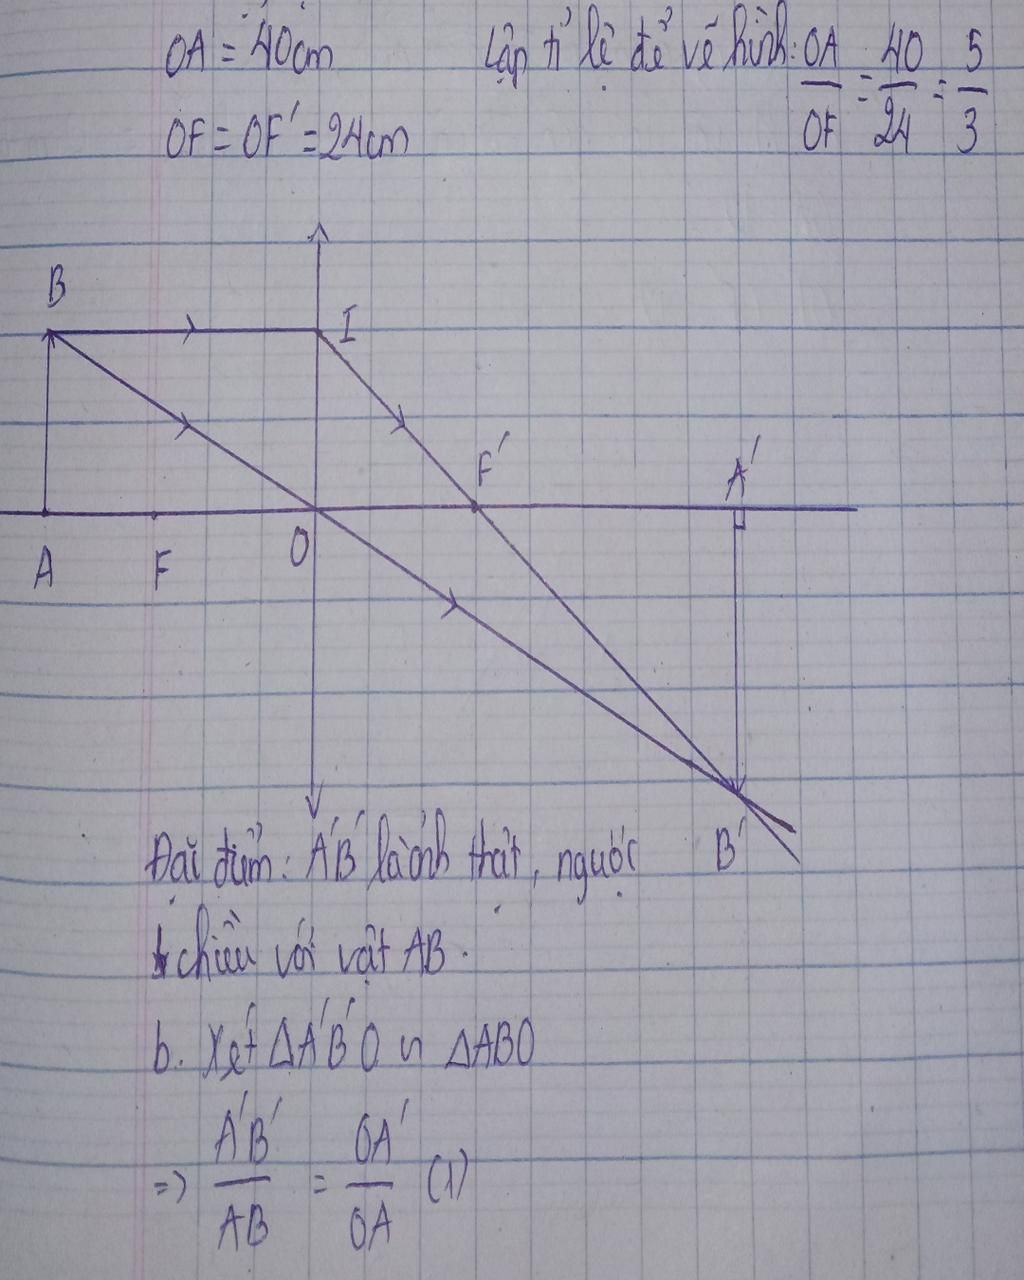 OA = 40cm Lập tỉ lệ để vẽ hình: OA/OF = 40/24 = 5/3
OF = OF' = 24cm
B
I
F'
A'
O
A
F
B'
Đặi điểm: A'B' là ảnh thật, ngược
chiều với vật AB.
b. Xét ΔA'B'O ∽ ΔABO
=> A'B'/AB = OA'/OA (1)